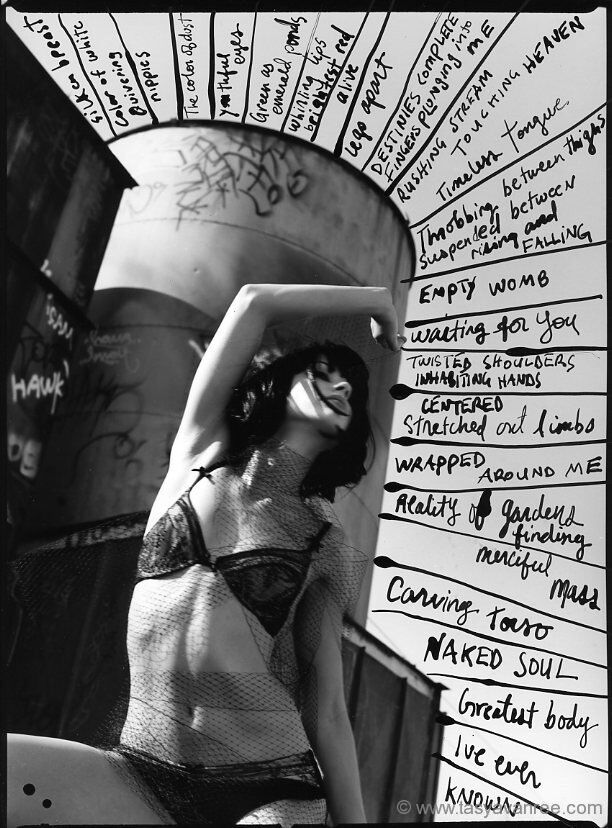 Silken breast
Color of white
Quivering
nipples
The color of dust
youthful
eyes
Green as
emerald ponds
whirling lips
brightest red
alive
legs apart
DESTINIES COMPLETE
FINGERS plunging into
ME
RUSHING STREAM
TOUCHING HEAVEN
Timeless tongue
Throbbing between thighs
suspended between
rising and
FALLING
EMPTY WOMB
waiting for you
TWISTED SHOULDERS
INHABITING HANDS
CENTERED
Stretched out limbs
WRAPPED
AROUND ME
Reality of gardens
finding
merciful
Mass
Carving torso
NAKED SOUL
Greatest body
I've ever
KNOWN
HAWK
© www.tasyavanree.com